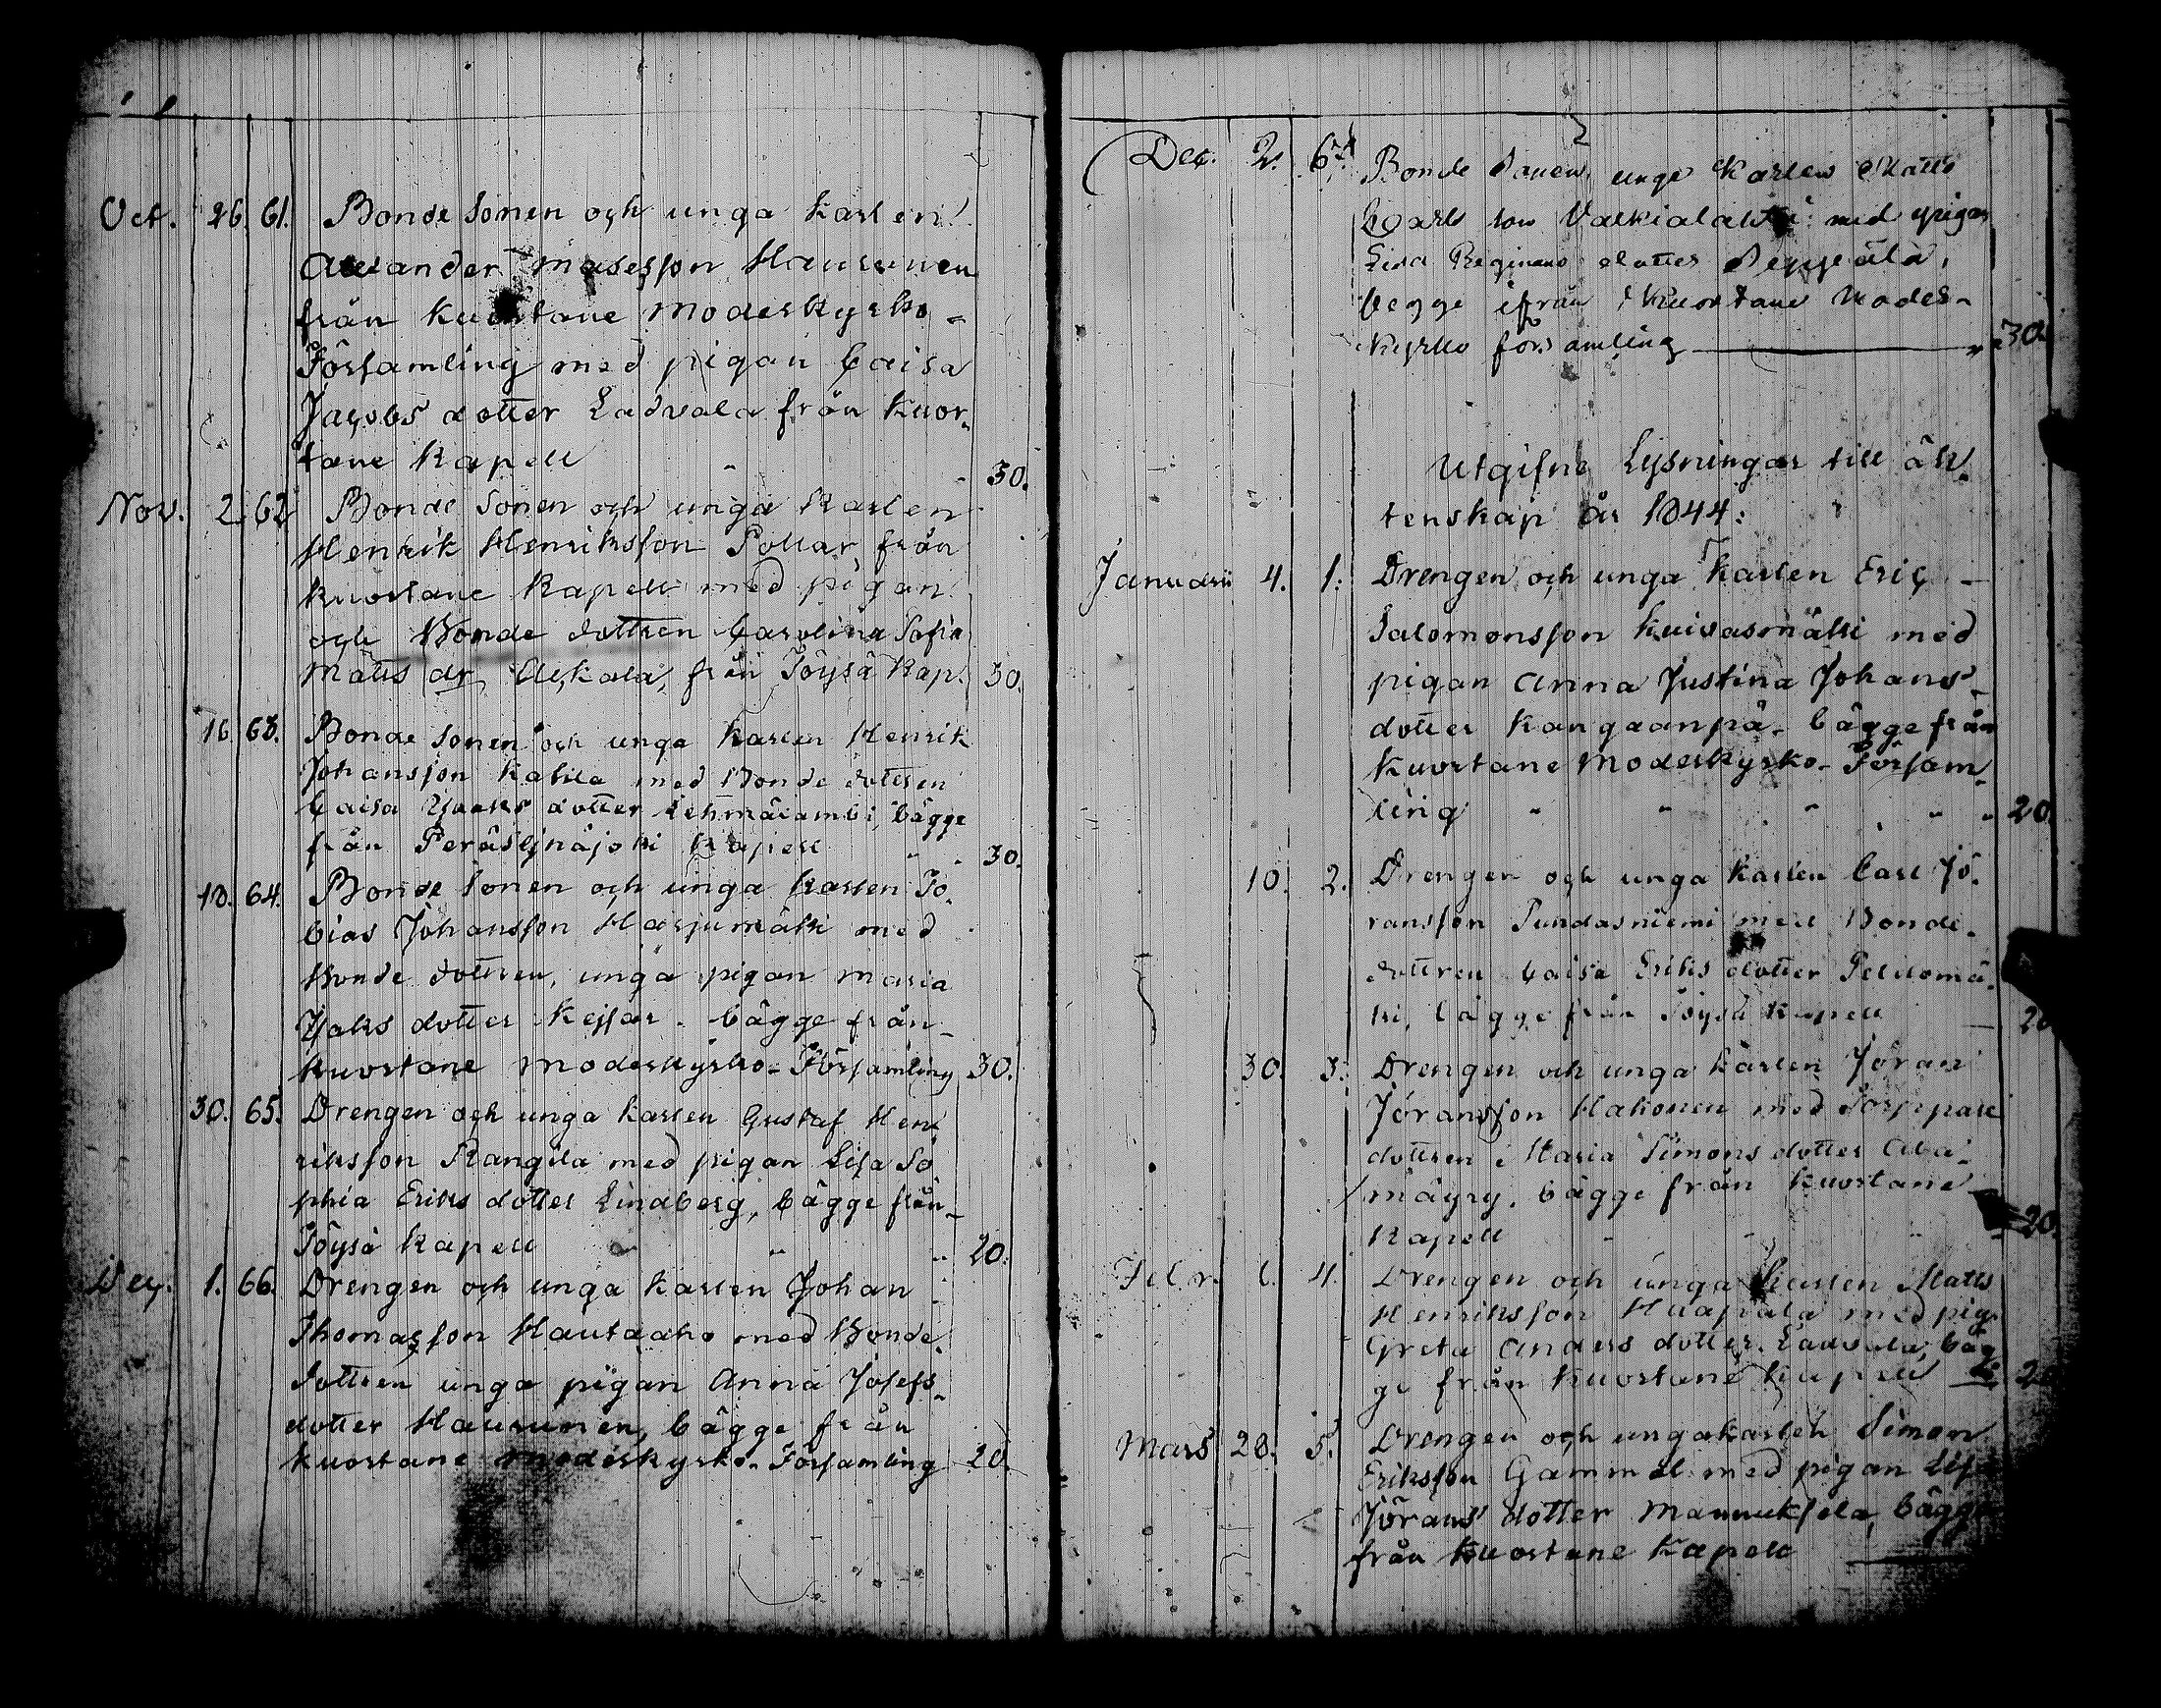 Oct. 26. 61. Bonde Sonen och unga Karlen
Alexander Masesson Haurunen
från Kuortane Moderkyrko-
Församling med pigan Caisa
Jacobs dotter Ladvala från Kuor-
tane Kapell 30.
Nov. 2. 62 Bonde Sonen och unga Karlen
Henrik Henriksson Pollar från
Kuortane Kapell med pigan
och Bonde dottren Carolina Sofia
Matts dr från Töysä Kap. 30.
16. 63. Bonde Sonen och unga Karlen Henrik
Johansson Kahila med Bonde dottren
Caisa dotter bägge
från Peräseinäjoki Kapell 30.
18. 64. Bonde Sonen och unga Karlen To-
bias Johansson Harjumäki med
Bonde dottren, unga pigan Maria
Isaks dotter Keisar. bägge från
Kuortane Moderkyrko-Församling 30.
30. 65. Drengen och unga Karlen Gustaf Hen-
riksson Rangila med pigan Lisa So
phia Eriks dotter Lindberg, bägge från
Töysä Kapell 20.
Dec. 1. 66. Drengen och unga Karlen Johan
Thomasson Hautaaho med Bonde
dottren unga pigan Anna Josefs-
dotter Haurunen, bägge från
Kuortane Moderkyrko-Församling 20.
Dec. 2. Bonde Sonen unge Karlen Matts
Carls son Valkialahti med pigan
Lisa Reginas dotter Seppälä,
begge ifrån Kuortane Moder-
kyrko församling 30.
Utgifne Lysningar till äk-
tenskap år 1844:
Januarii 4. 1. Drengen och unga Karlen Eric
Salomonsson Kuivasmäki med
pigan Anna Justina Johans-
dotter Kangaanpä. bägge från
Kuortane Moderkyrko-Försam-
ling 20.
10. 2. Drengen och unga Karlen Carl Jö-
ransson Pundasniemi med Bonde-
dottren Caisa Eriks dotter Peldomä-
ki, bägge från Töysä Kapell 20
30. 3. Drengen och unga Karlen Jöran
Jöransson Hakonen med Torppare
dottren Maria Simons dotter Ala-
mäyry. bägge från Kuortane
Kapell 20
Febr. 4. Drengen och unga Karlen Matts
Henriksson Haapala med pig.
Greta Anders dotter Ladvala, bäg-
ge från Kuortane Kapell 20
Mars 28. 5. Drengen och unga Karlen Simon
Eriksson Gammel med pigan Lisa
Jörans dotter Mannuksela, bägge
från Kuortane Kapell